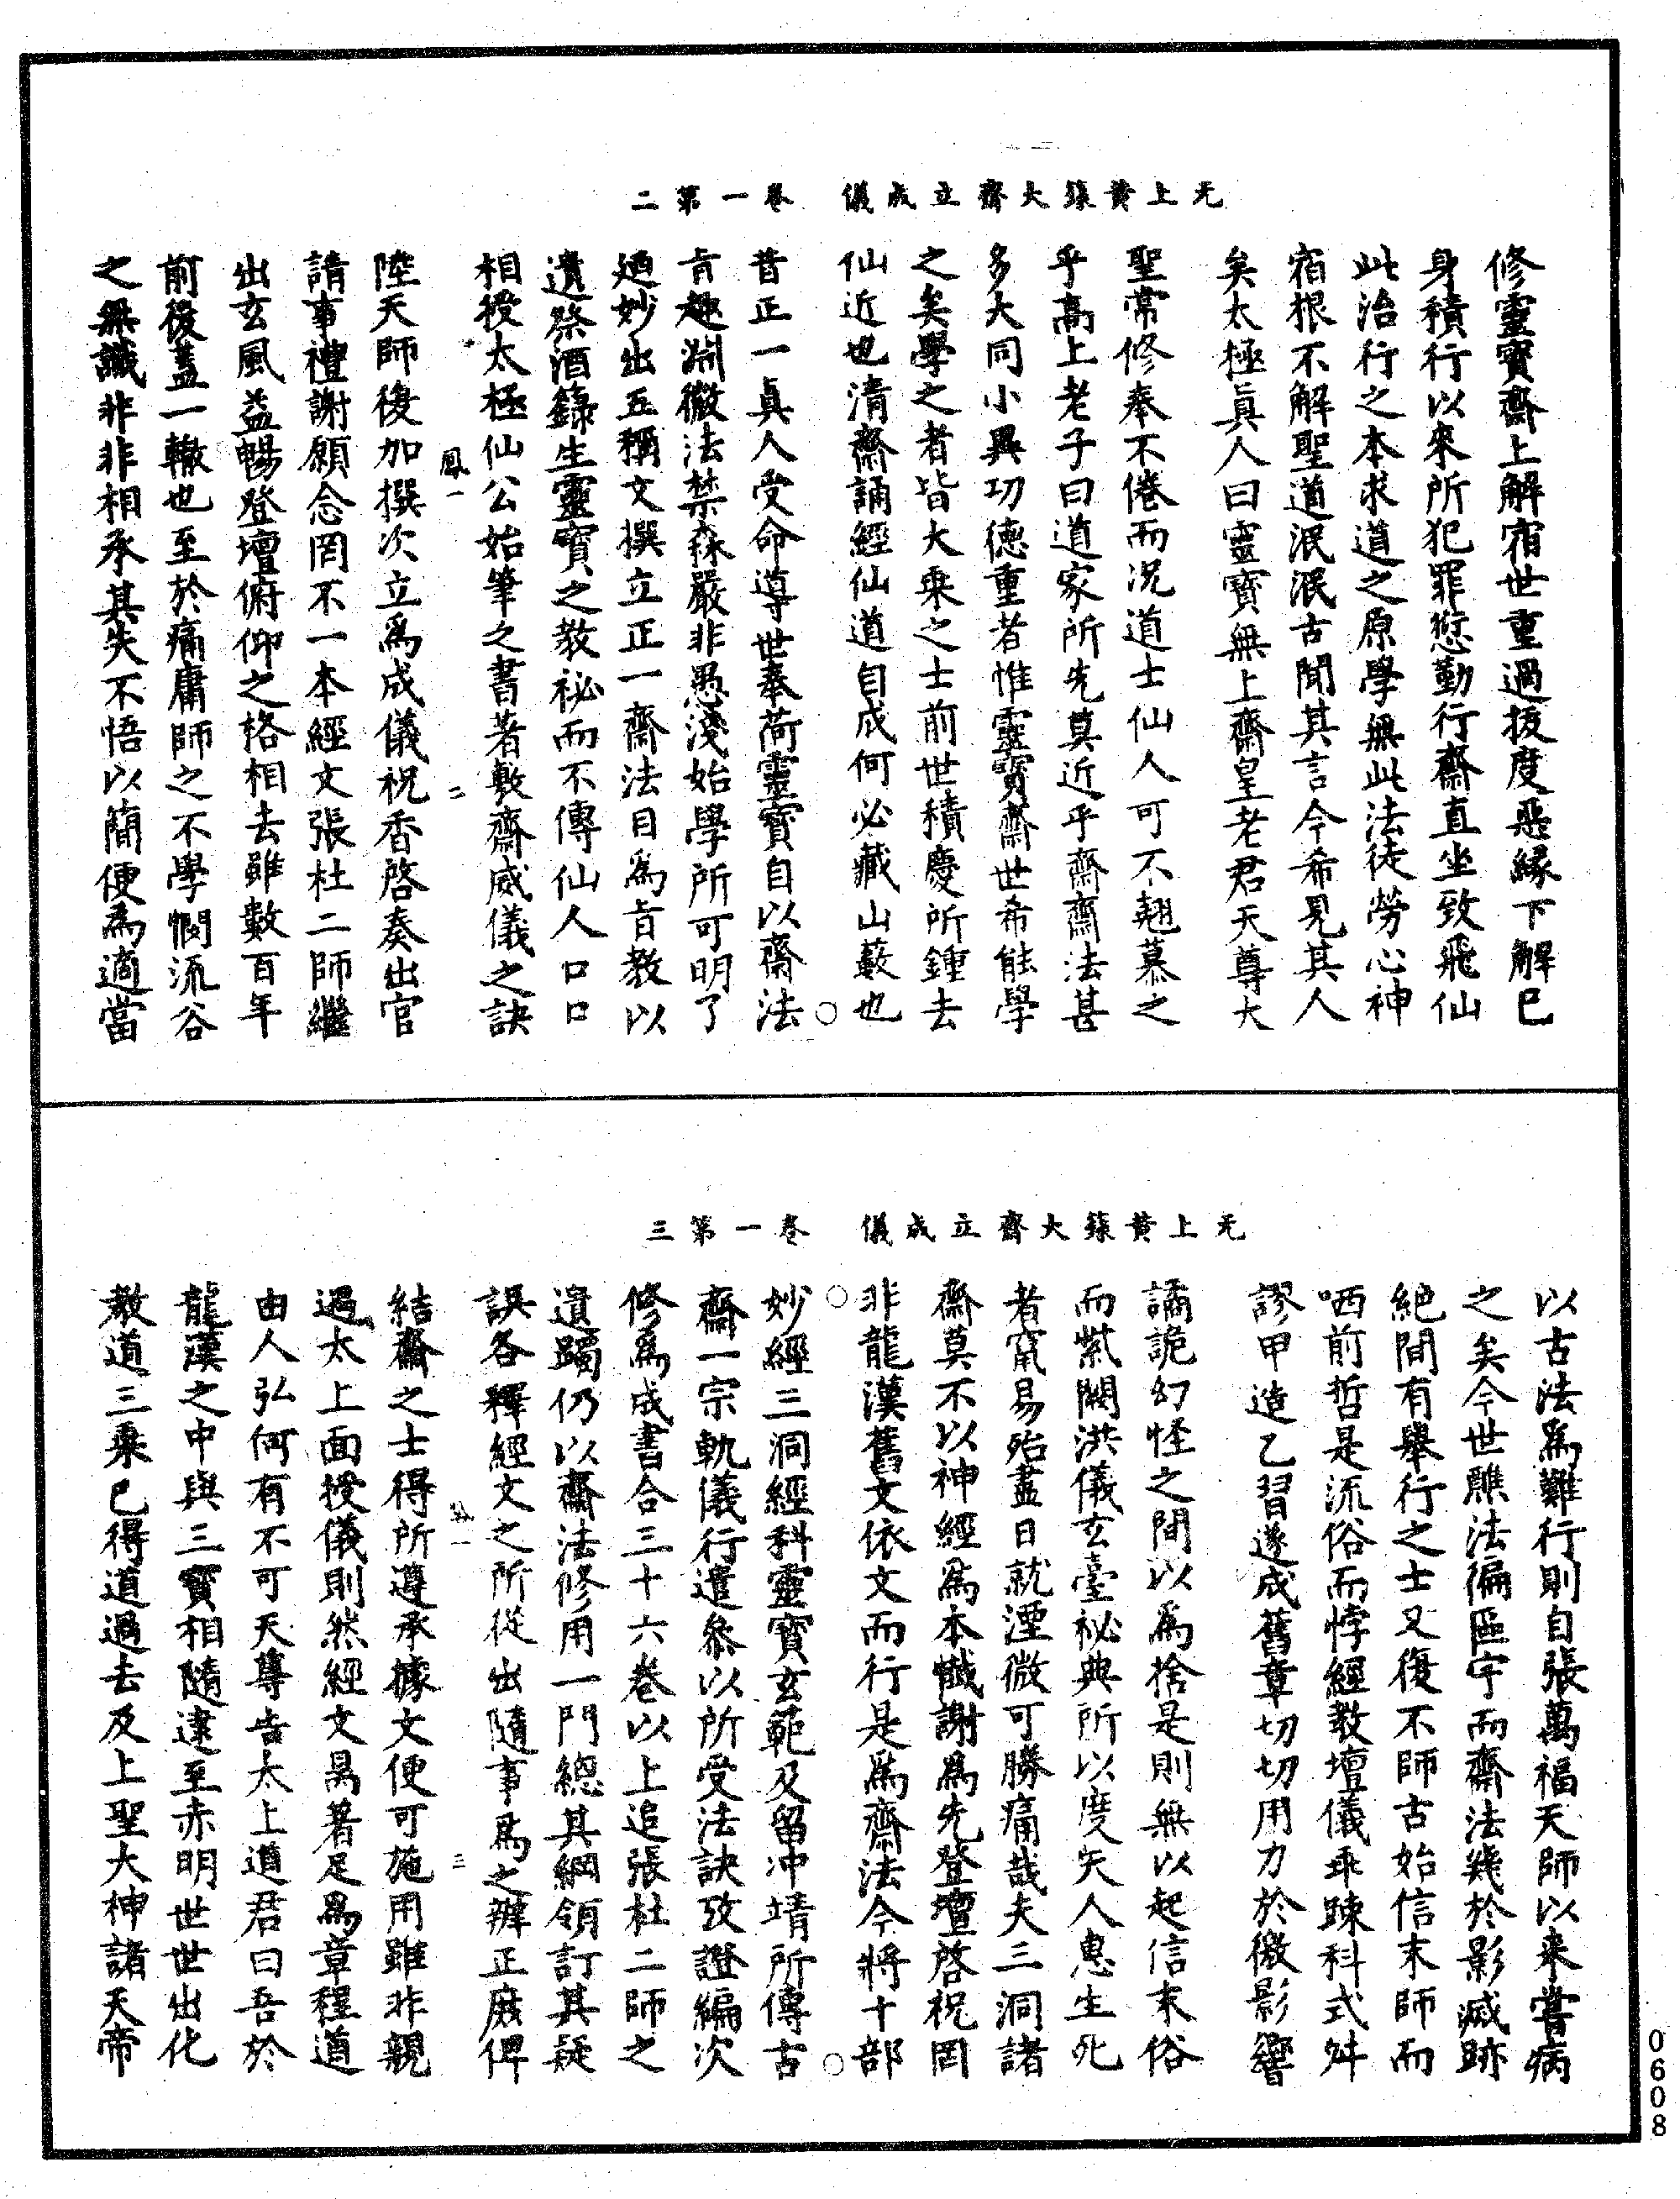 无上黃籙大齋立成儀　卷一第二
修靈寶齋上解宿世重過拔度惡緣下解已
身積行以來所犯罪愆勤行齋直坐致飛仙
此治行之本求道之原學無此法徒勞心神
宿根不解聖道泯泯古聞其言今希見其人
矣太極眞人曰靈寶無上齋皇老君天尊大
聖常修奉不倦而况道士仙人可不翹慕之
乎高上老子曰道家所先莫近乎齋齋法甚
多大同小異功德重者惟靈寶齋世希能學
之矣學之者皆大乘之士前世積慶所鍾去
仙近也清齋誦經仙道自成何必藏山藪也
昔正一真人受命導世奉荷靈寶自以齋法
旨趣淵微法禁森嚴非愚淺始學所可明了
廼妙出五稱文撰立正一齋法目為旨教以
遺祭酒籙生靈寶之教祕而不傳仙人口口
相授太極仙公始筆之書著敷齋威儀之訣
鳳一　二
陸天師復加撰次立爲成儀祝香啓奏出官
請事禮謝願念罔不一本經文張杜二師繼
出玄風益暢登壇俯仰之格相去雖數百年
前後蓋一轍也至於痛庸師之不學憫流谷
之無識非非相承其失不悟以簡便為適當
无上黃籙大齋立成儀　卷一第三
以古法爲難行則自張萬福天師以來嘗病
之矣今世醮法徧區宇而齋法幾於影滅跡
絕間有舉行之士又復不師古始信末師而
哂前哲是流俗而悖經教壇儀乖踈科式舛
謬甲造乙習遂成舊章切切用力於微影響
譎詭幻怪之間以爲捨是則無以起信末俗
而紫闕洪儀玄臺祕典所以度夭人惠生死
者竄易殆盡日就湮微可勝痛哉夫三洞諸
齋莫不以神經爲本懺謝爲先登壇啓祝罔
非龍漢舊文依文而行是爲齋法今將十部
妙經三洞經科靈寶玄範及留冲靖所傳古
齋一宗軌儀行遣叅以所受法訣攷證編次
修爲成書合三十六卷以上追張杜二師之
遺躅仍以齋法修用一門總其綱領訂其疑
誤各釋經文之所從出隨事爲之辨正庶俾
三
結齋之士得所遵承據文便可施用雖非親
過太上面授儀則然經文昺著足爲章程道
由人弘何有不可天尊告太上道君曰吾於
龍漢之中與三寶相隨逮至赤明世世出化
教道三乘已得道過去及上聖大神諸天帝
0608